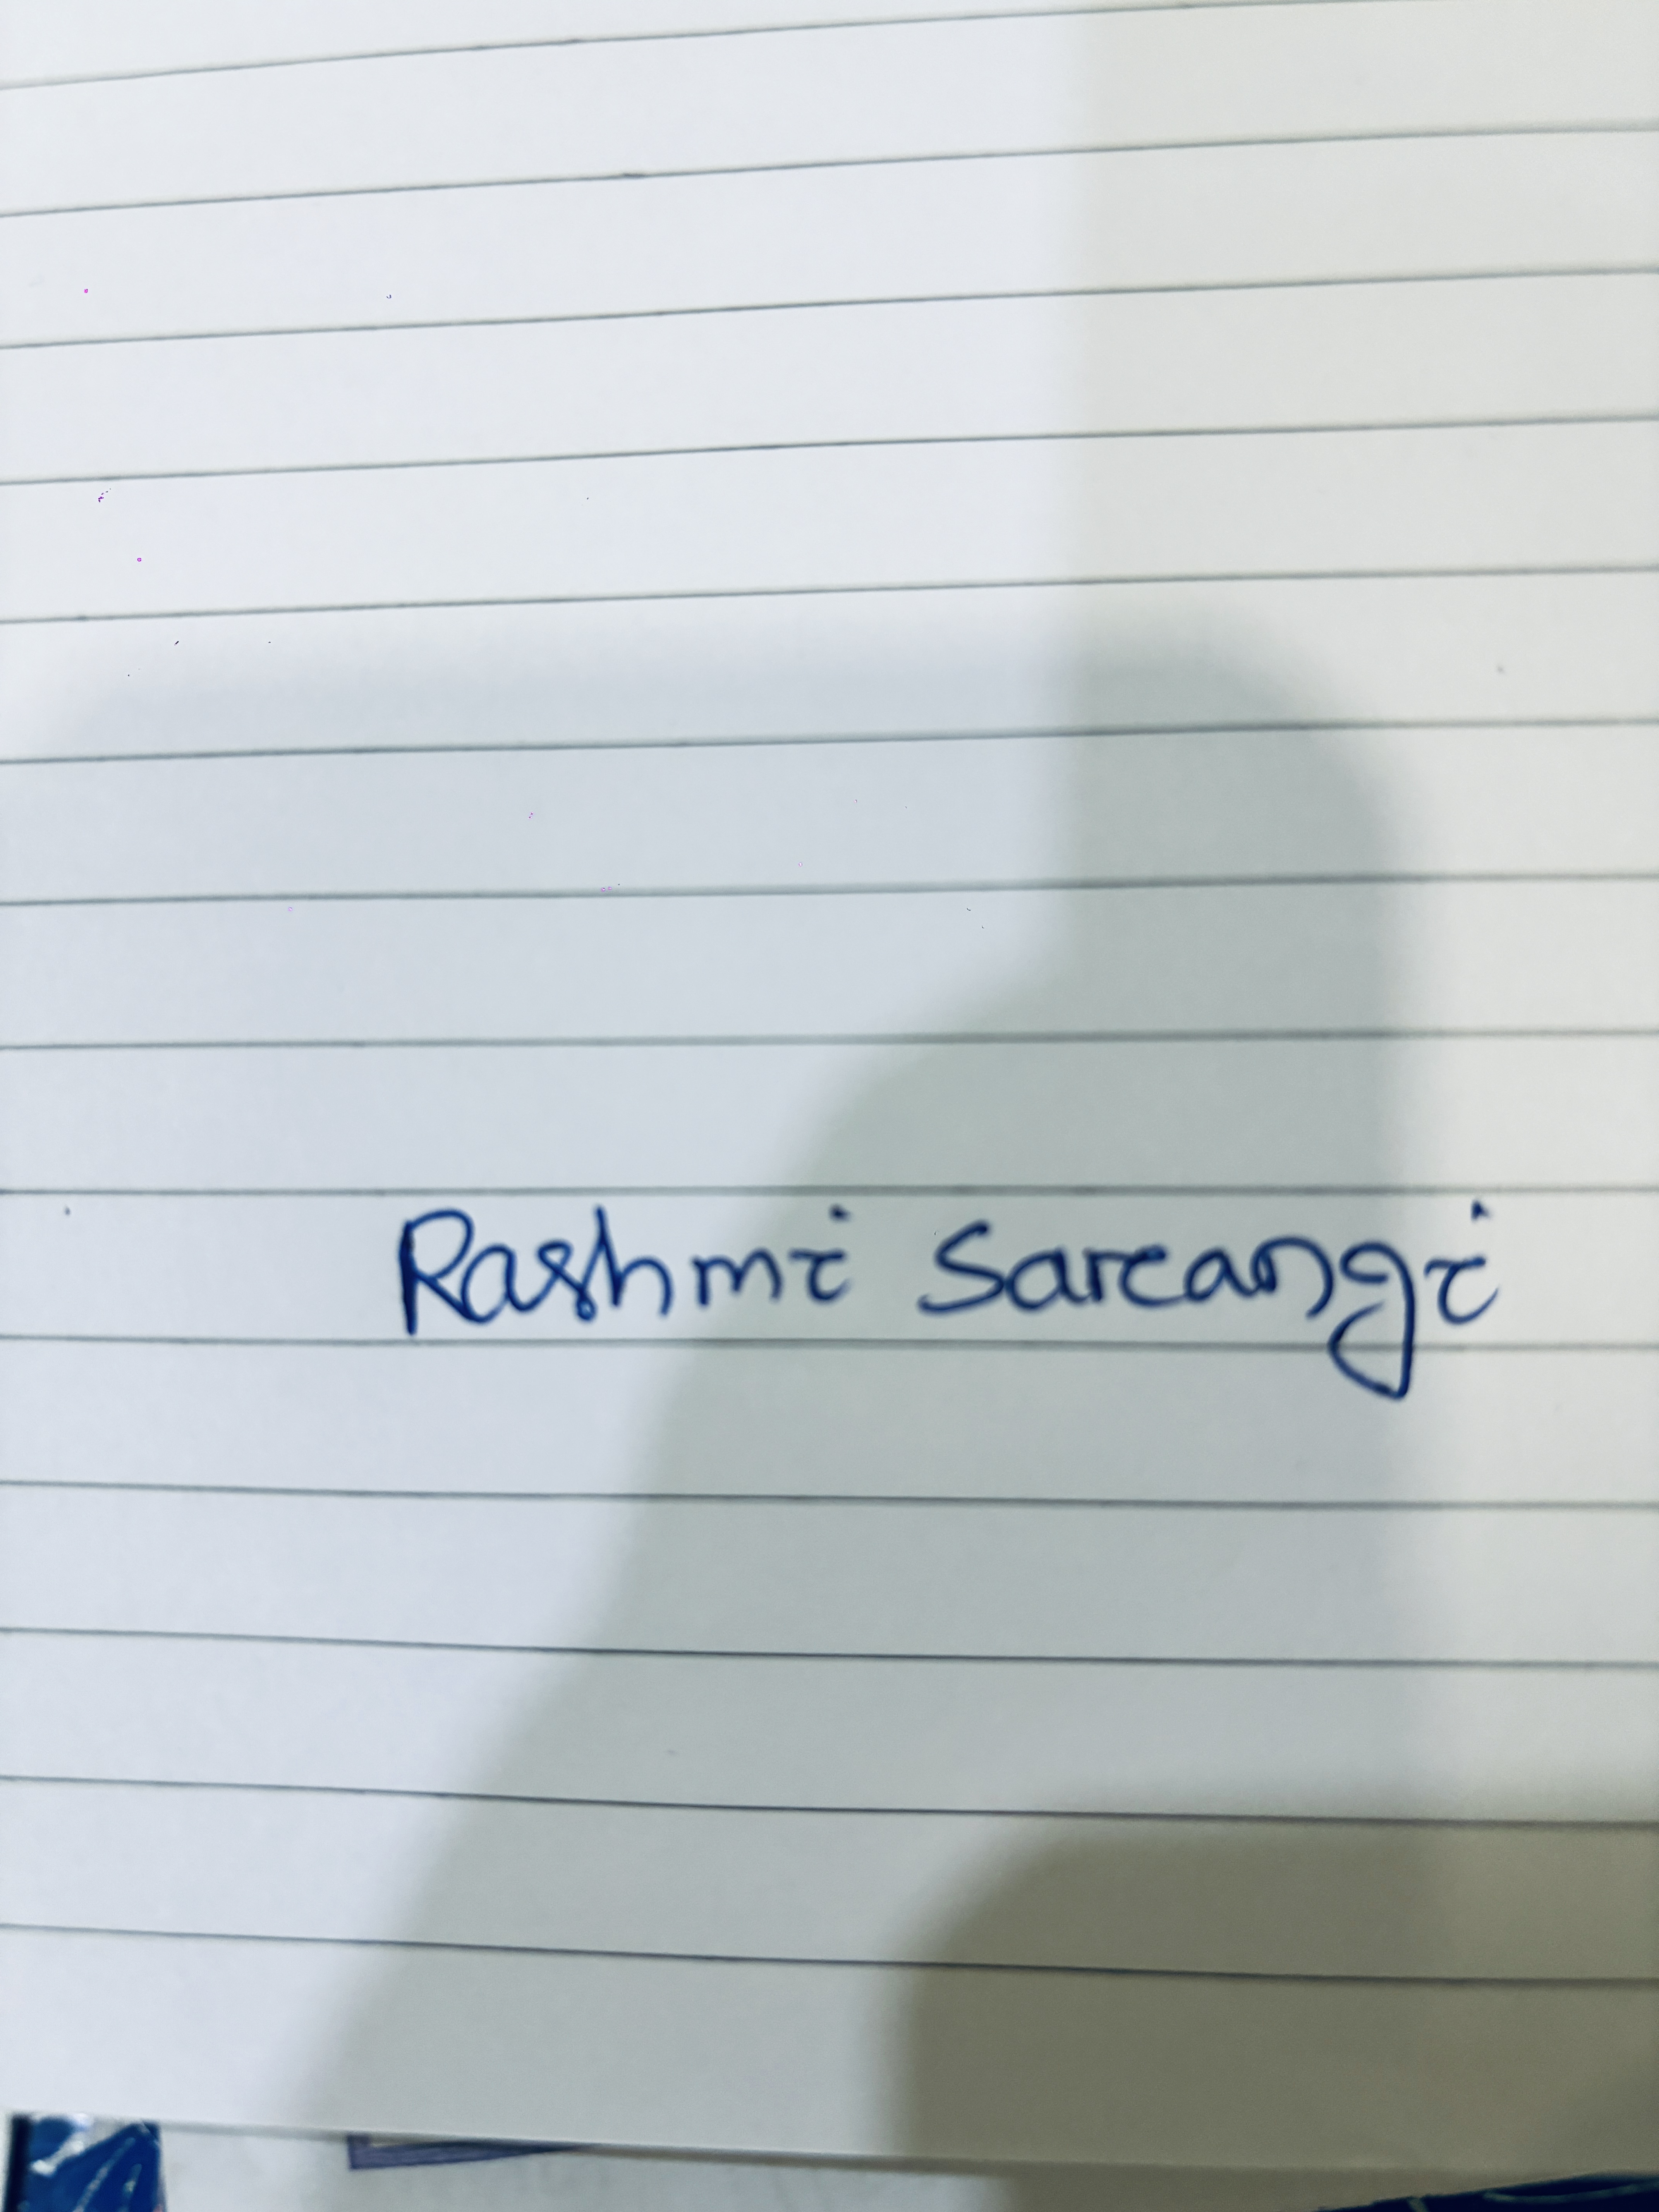 Rashmi Sarangi